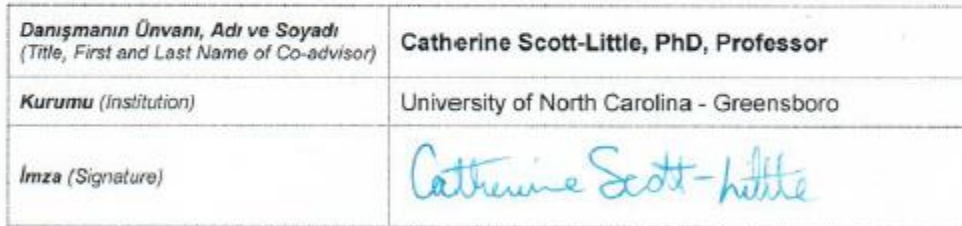 Danışmanın Ünvanı, Adı ve Soyadı
(Title, First and Last Name of Co-advisor)
Catherine Scott-Little, PhD, Professor
Kurumu (Institution)
University of North Carolina - Greensboro
İmza (Signature)
Catherine Scott-Little